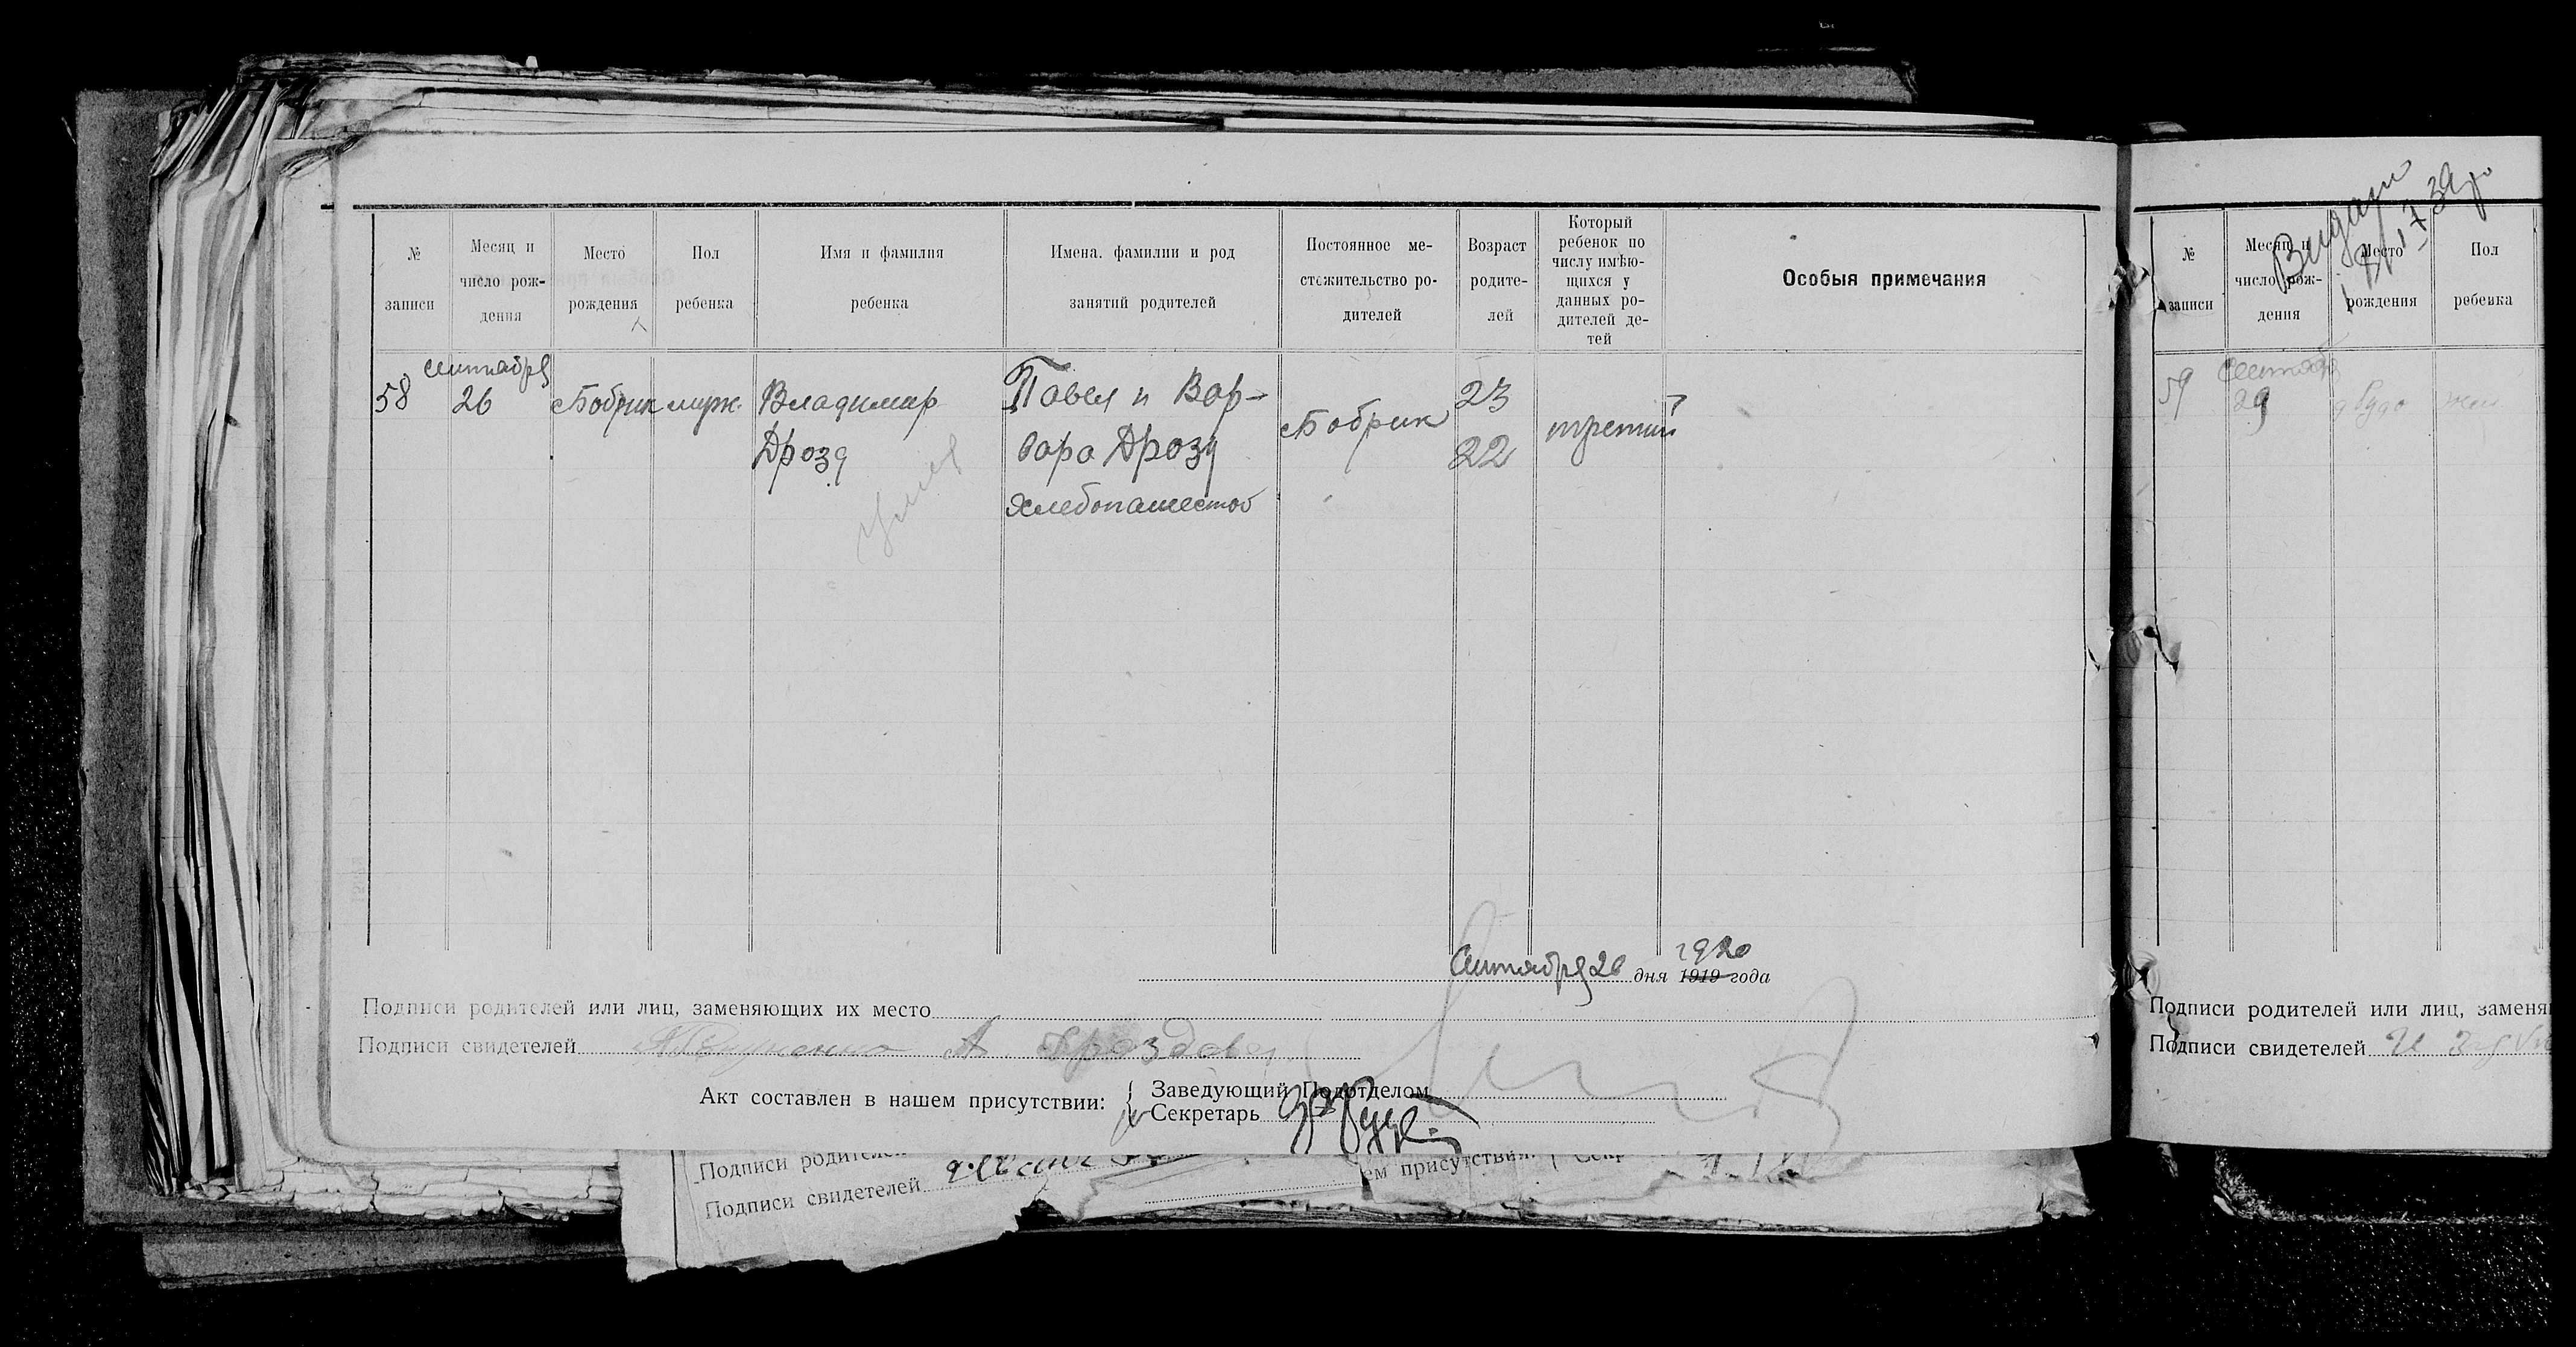 № записи
Месяц и число рождения
Место рождения
Пол ребенка
Имя и фамилия ребенка
Имена, фамилии и род занятий родителей
Постоянное местожительство родителей
Возраст родителей
Который ребенок по числу имѣющихся у данных родителей детей
Особыя примечания
58
Сентября
26
Бобрик
муж.
Владимир
Дрозд
Павел и Вар-
вара Дрозд
Хлебопашество
Бобрик
23
22
третий
Сентября 26 дня 1919 года
1920
Подписи родителей или лиц, заменяющих их место
Подписи свидетелей
А Дроздова
Акт составлен в нашем присутствии:
Заведующий Подотделом
Секретарь
Подписи родителей
Подписи свидетелей
ем присутствии:
№ записи
Месяц и число рождения
Место рождения
Пол ребенка
59
29
жен
Подписи родителей или лиц, заменя
Подписи свидетелей